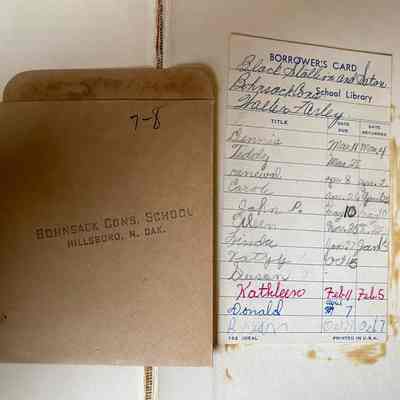 7-8
BOHNSACK CONS. SCHOOL
HILLSBORO, N. DAK.
BORROWER'S CARD
Black Stallion and Satan
Bohnsack Cons. School Library
Walter Farley
TITLE DATE DUE DATE RETURNED
Dennis Mar 11 Mar 4
Teddy Mar 25
renewal apr 8
Carol
John P. 10
Eileen
Linda Jan 27 Jan
Kathy Oct 15
Kathleen Feb. 11 Feb. 5
Donald 7
Oct 7
PRINTED IN U.S.A.
IDEAL